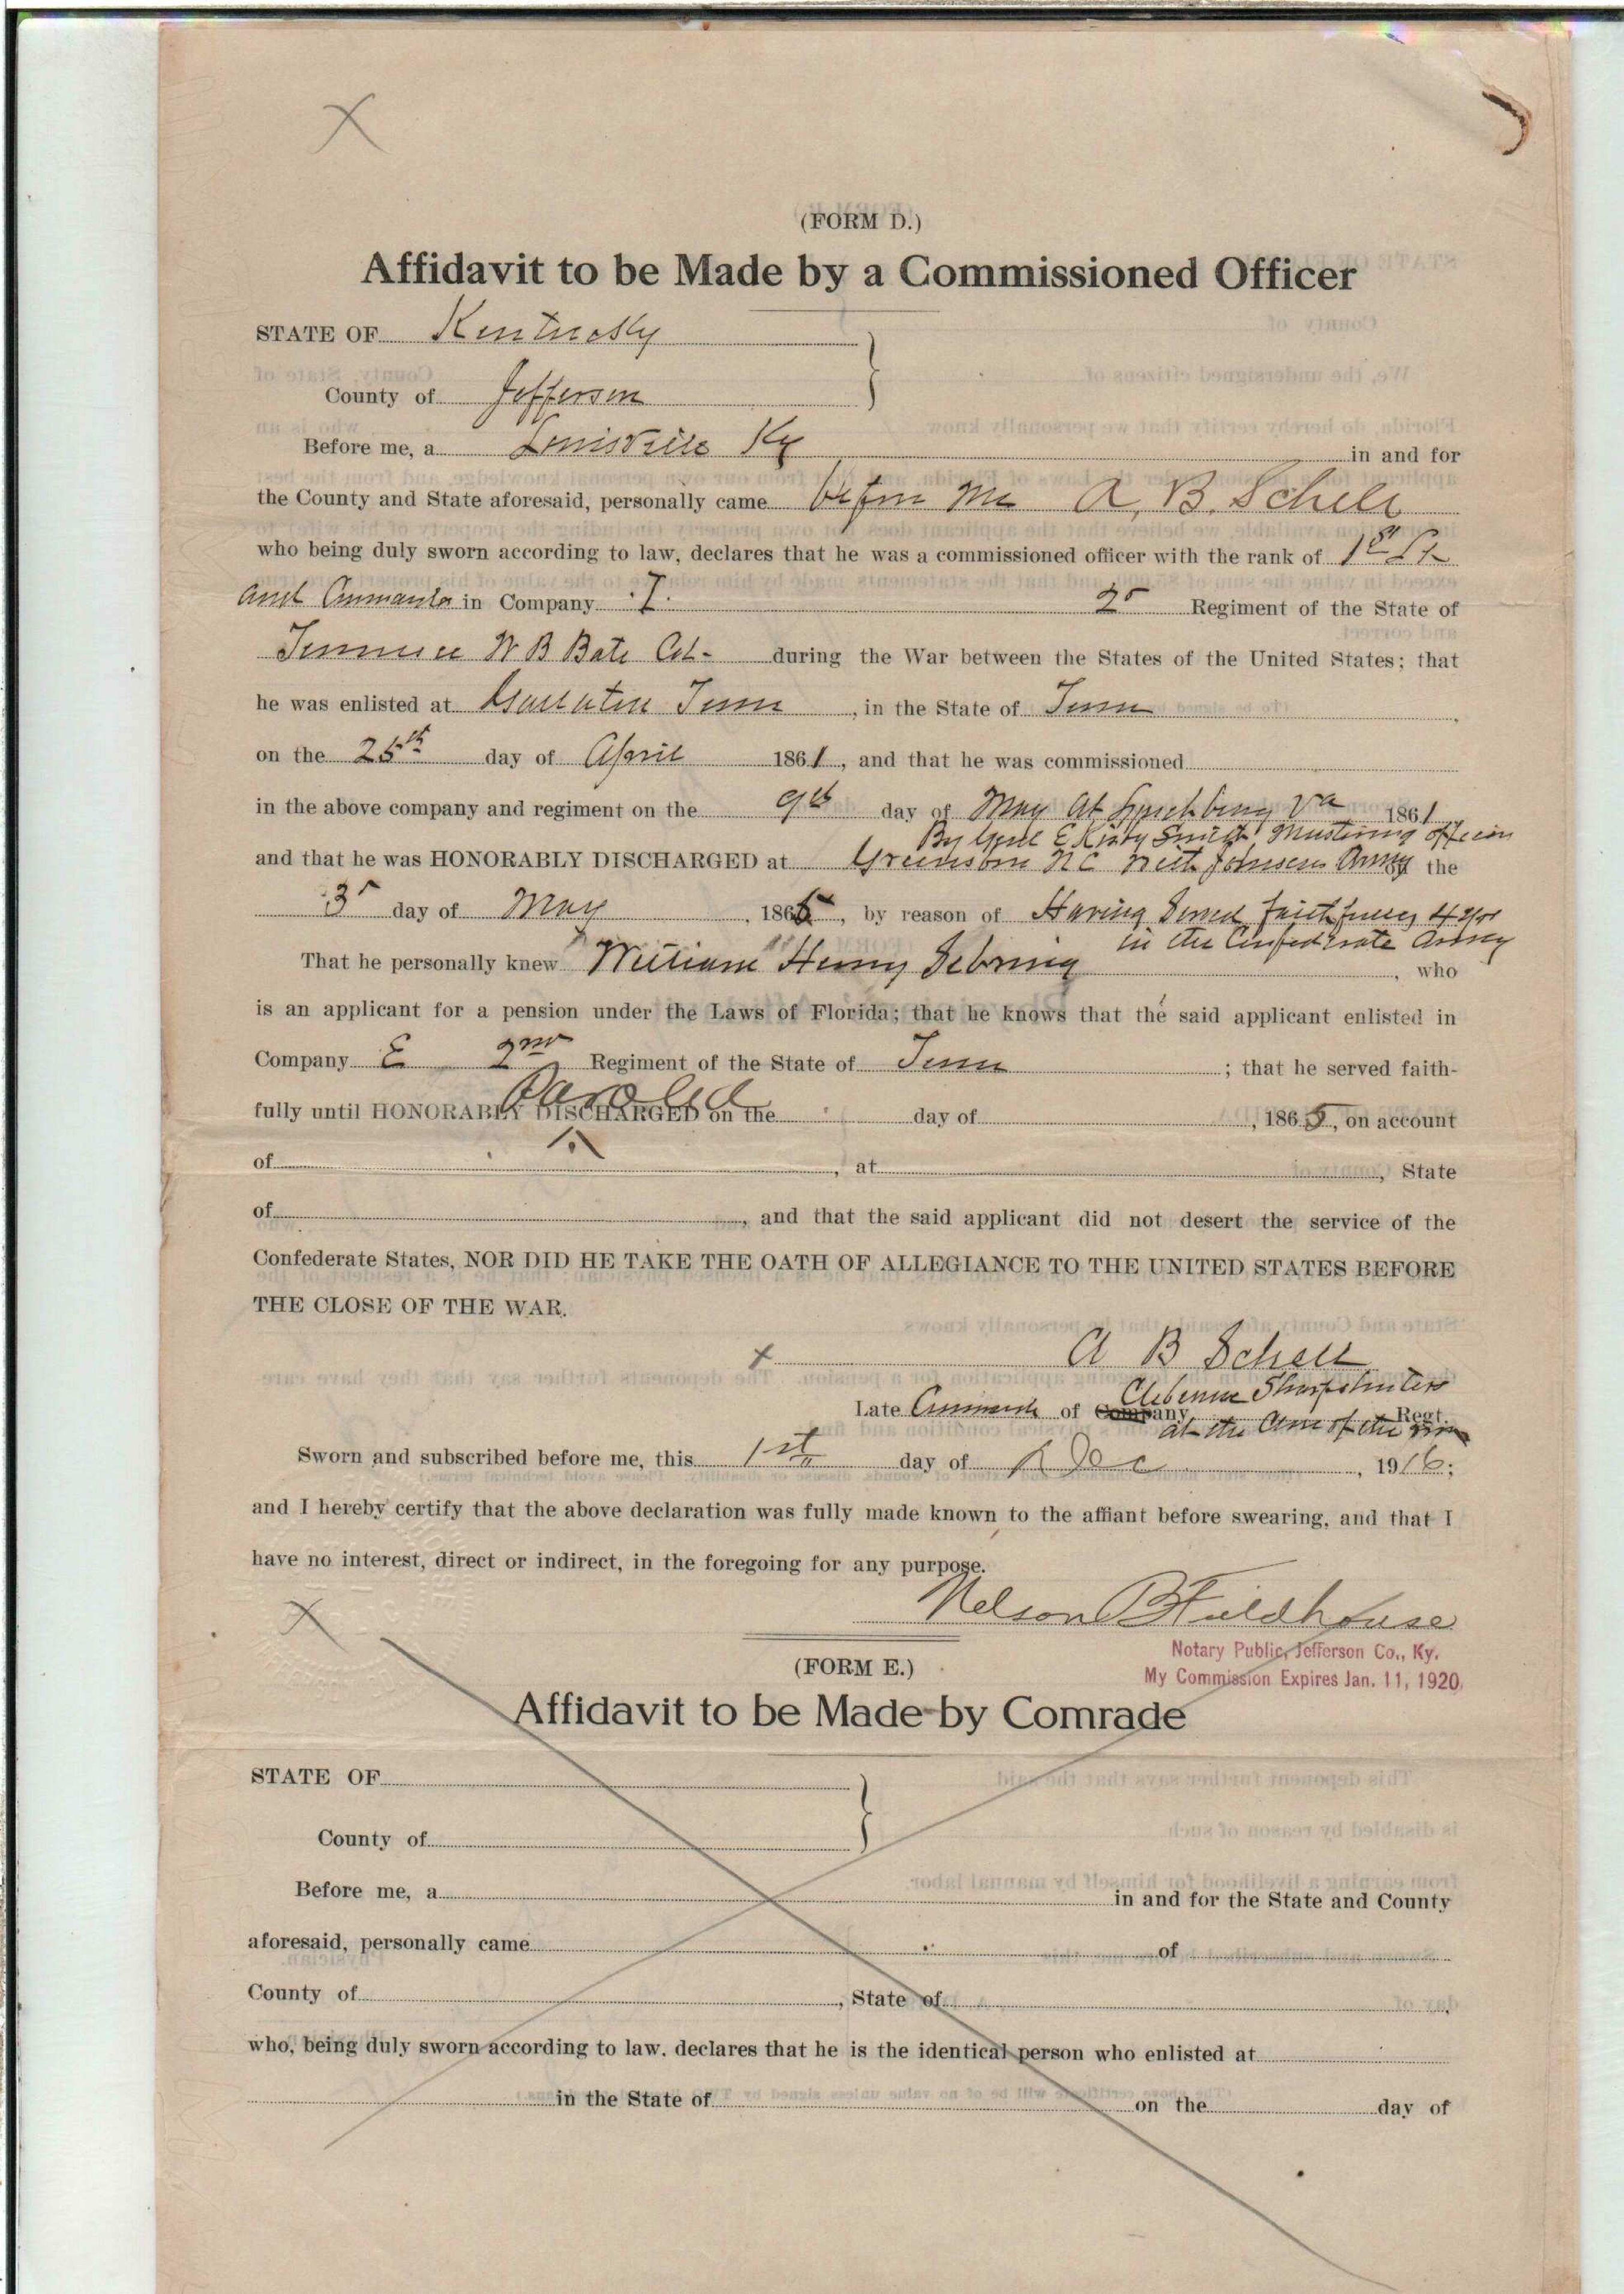 (FORM D.)
Affidavit to be Made by a Commissioned Officer
STATE OF Kentucky
County of Jefferson
Before me, a Louisville Ky in and for
the County and State aforesaid, personally came before me A, B. Schell
who being duly sworn according to law, declares that he was a commissioned officer with the rank of 1st Lt
and in Company I. 2d Regiment of the State of
Tennessee W B Bate Col- during the War between the States of the United States; that
he was enlisted at Gallatin Tenn, in the State of Tenn
on the 25th day of April 1861, and that he was commissioned
in the above company and regiment on the 9th day of May at Lynchburg Va 1861
By Genl E Kirby Smith Mustering officer
and that he was HONORABLY DISCHARGED at NC with Army of the
3d day of May, 1865, by reason of Having Served faithfully 4 yrs
in the Confederate Army
That he personally knew William Henry Sebring, who
is an applicant for a pension under the Laws of Florida; that he knows that the said applicant enlisted in
Company E 2nd Regiment of the State of Tenn; that he served faith-
Paroled
fully until HONORABLY DISCHARGED on the day of, 1865, on account
of, at, State
of, and that the said applicant did not desert the service of the
Confederate States, NOR DID HE TAKE THE OATH OF ALLEGIANCE TO THE UNITED STATES BEFORE
THE CLOSE OF THE WAR.
x A B Schell
Cleburne Sharpshuters
Late of Company Regt.
at the of the
Sworn and subscribed before me, this 1st day of Dec, 1916;
and I hereby certify that the above declaration was fully made known to the affiant before swearing, and that I
have no interest, direct or indirect, in the foregoing for any purpose.
Nelson B Fieldhouse
Notary Public, Jefferson Co., Ky.
My Commission Expires Jan. 11, 1920.
(FORM E.)
Affidavit to be Made by Comrade
STATE OF
County of
Before me, a in and for the State and County
aforesaid, personally came of
County of, State of
who, being duly sworn according to law, declares that he is the identical person who enlisted at
in the State of on the day of